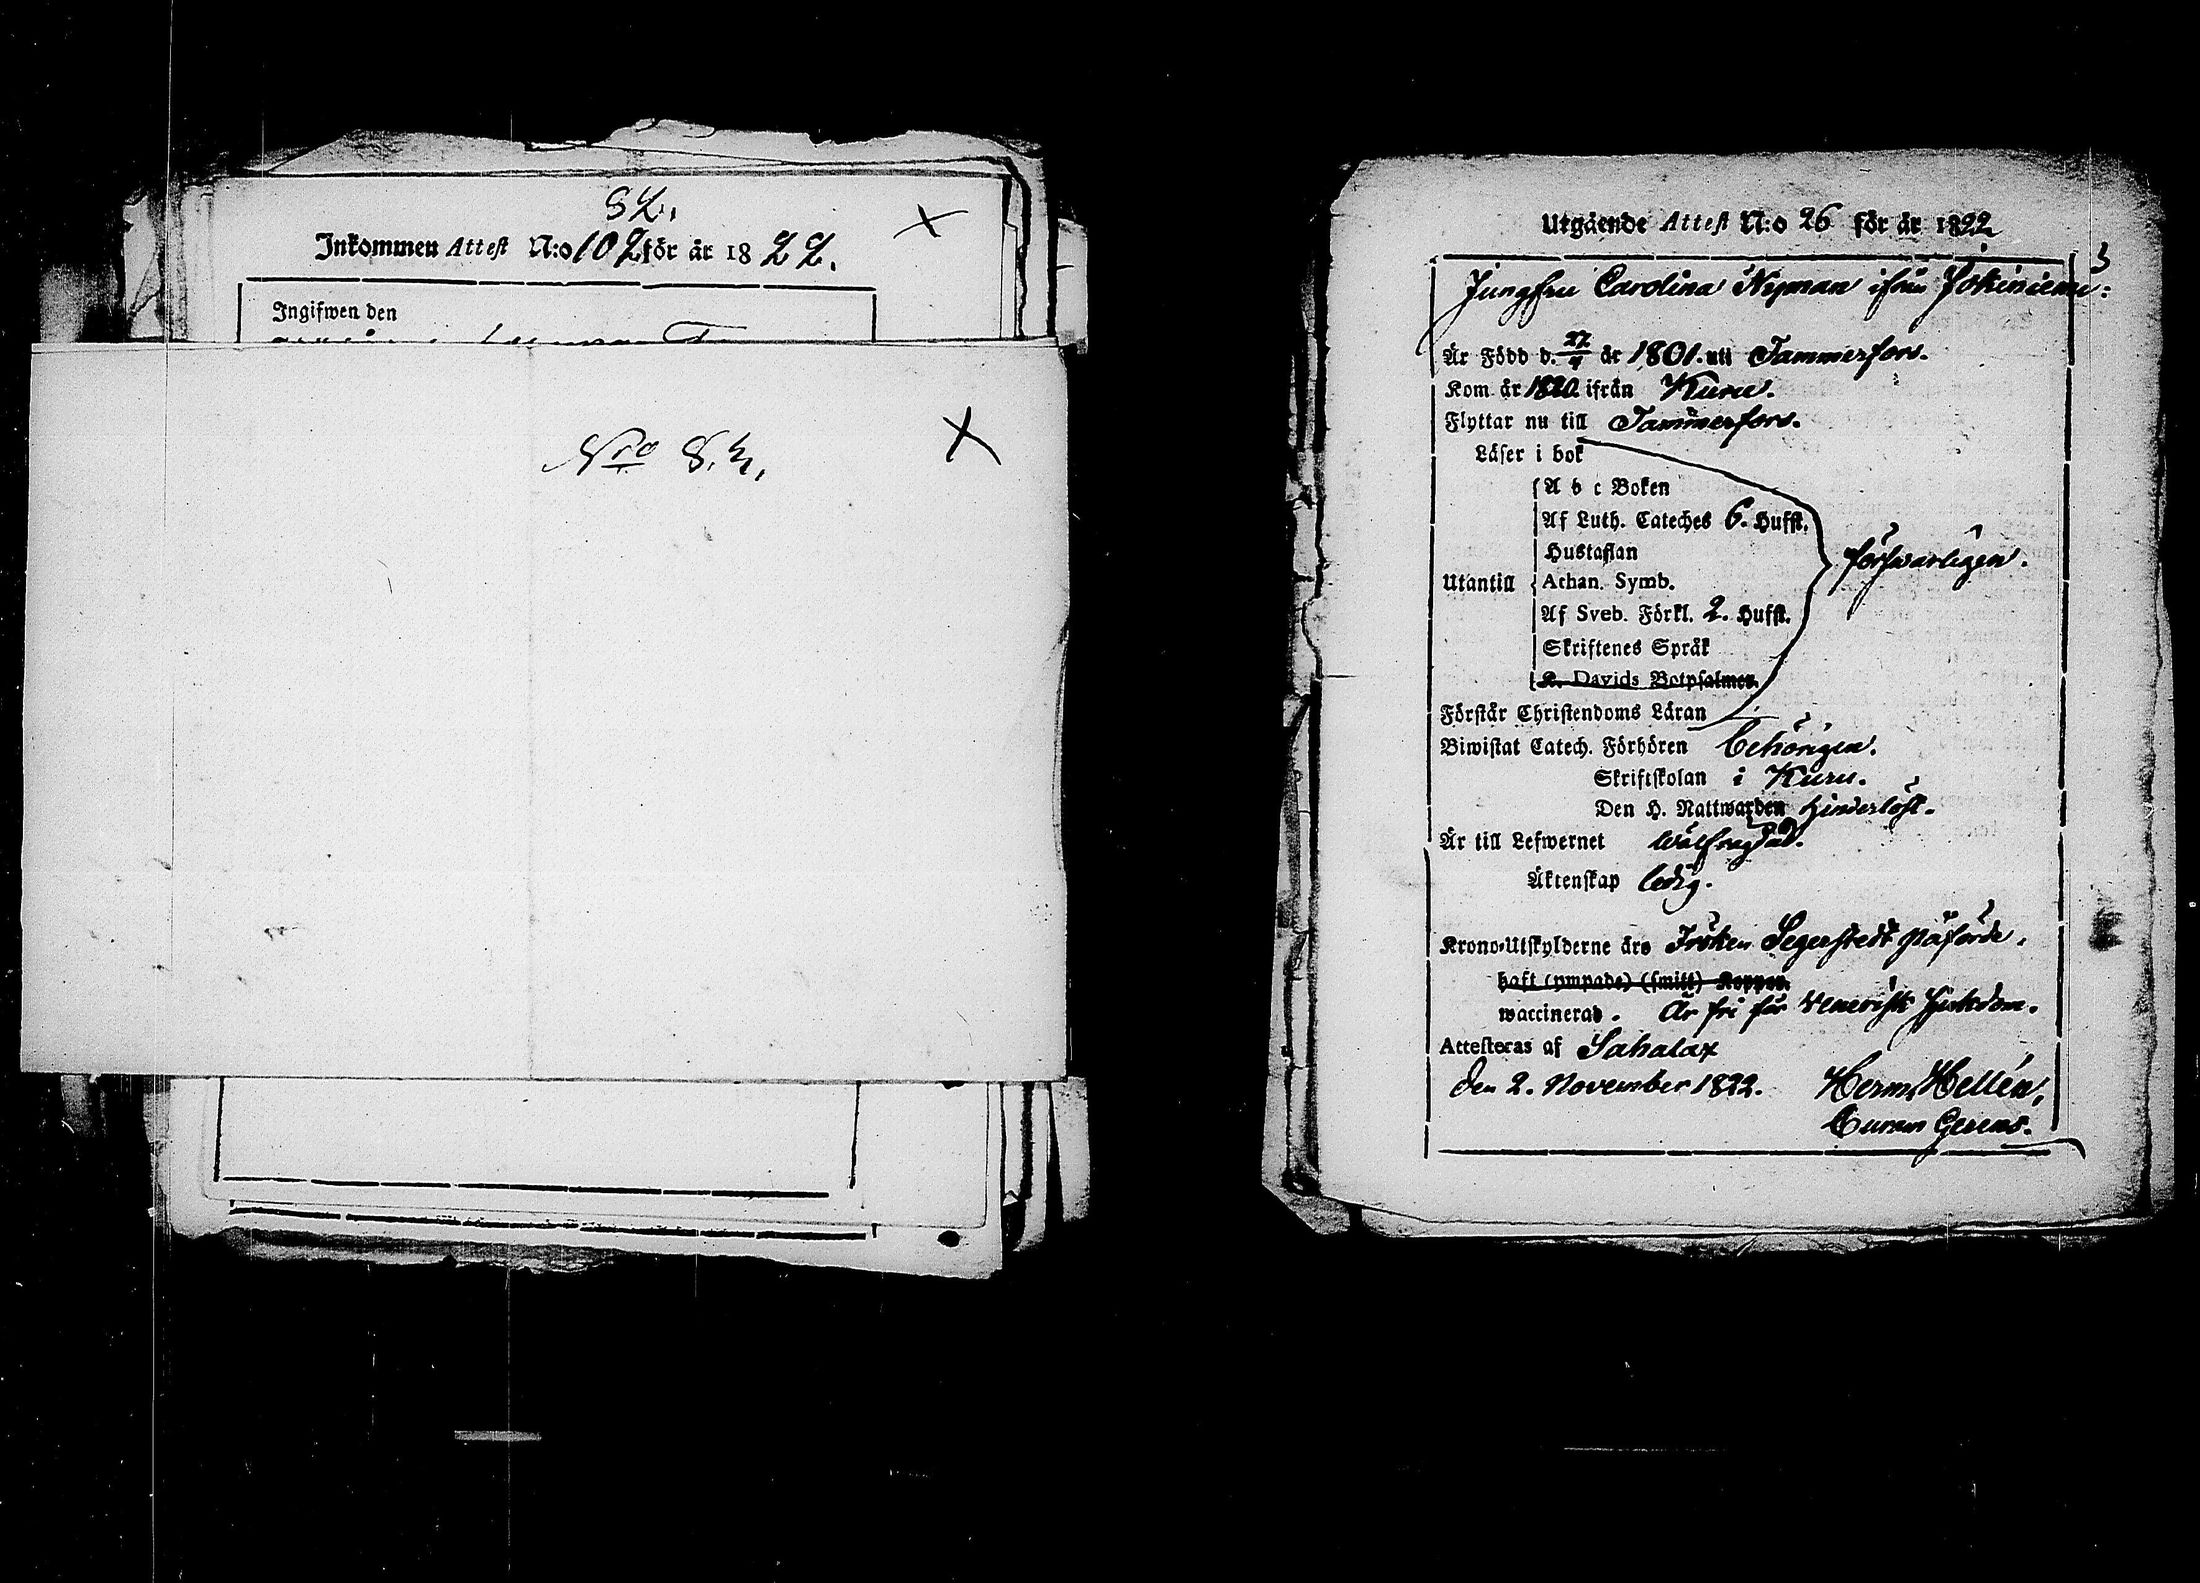 82.
Inkommen Attest N:o 102 för år 1822.
Ingifwen den
Nro 82.
Utgående Attest N:o 26 för år 1822
3
Jungfru Carolina Nyman ifrån Jokiniemi:
Är Född d. 27/4 år 1801. uti Tammerfors.
Kom år 1820 ifrån Kuru.
Flyttar nu till Tammerfors.
Läser i bok
A b c Boken
Af Luth. Cateches 6. Hufst.
Hustaflan
försvarligen.
Utantill Athan. Symb.
Af Sveb. Förkl. 2. Hufst.
Skriftenes Språk
K. Davids Botpsalmer.
Förstår Christendoms Läran
Biwistat Catech. Förhören behörigen.
Skriftskolan i Kuru.
Den H. Nattwarden hinderlöst.
Är till Lefwernet wälfrägdad.
Äktenskap ledig.
Krono-Utskylderne äro Fröken Segerstedt påförde.
haft (ympade) (smitt) Koppor.
waccinerad. Är fri för Venerisk sjukdom.
Attesteras af Sahalax
den 2. November 1822. Herm. Hellén,
Curam Gerens.